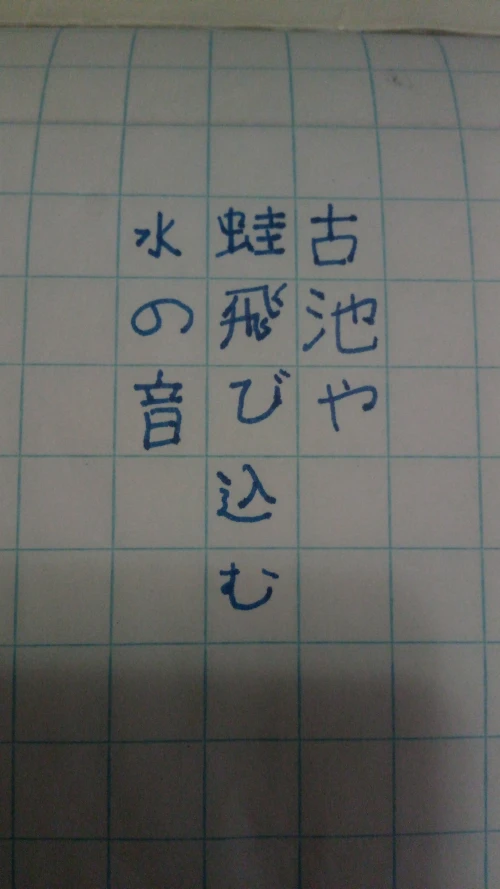 古池や
蛙飛び込む
水の音